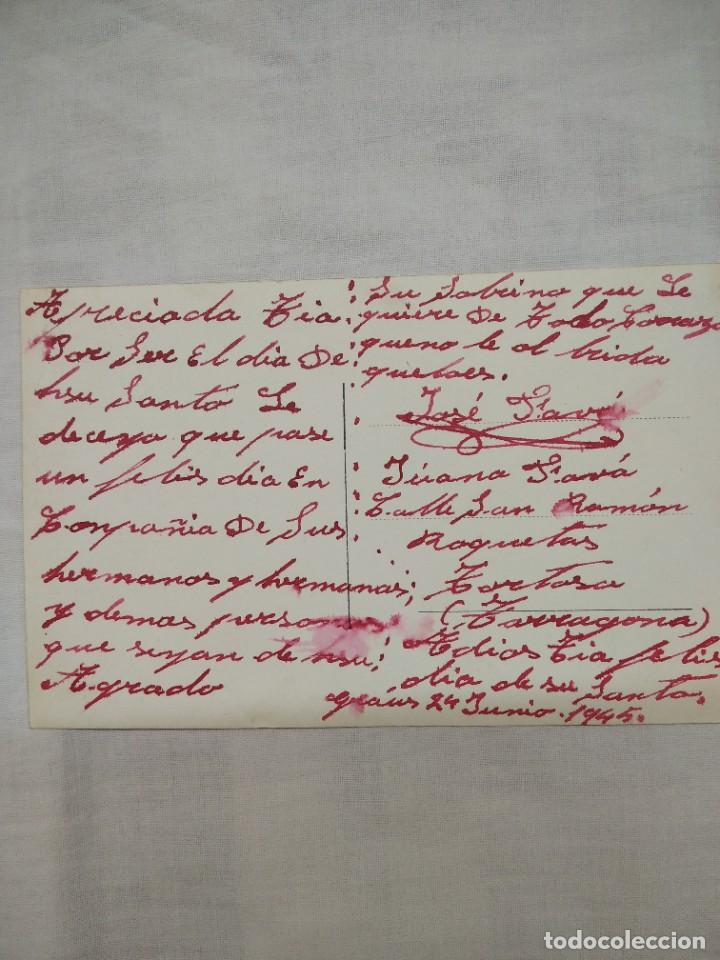 Apreciada Tia
Por Ser El dia De
hsu Santo Le
deceyo que pase
un felis dia En
Conpañia De Sus
hermanos y hermanas;
y demas personas
que seyan de hsu;
Agrado
Su Sobrino que Le
quiere De Todo Corazo
queno le ol brida
José Favá
Júana Favá
Calle San Ramón
Roquetas
Tortosa
(Tarragona)
Adios Tia felis
dia de su Santo.
Graús 24 Junio. 1945.
todocoleccion